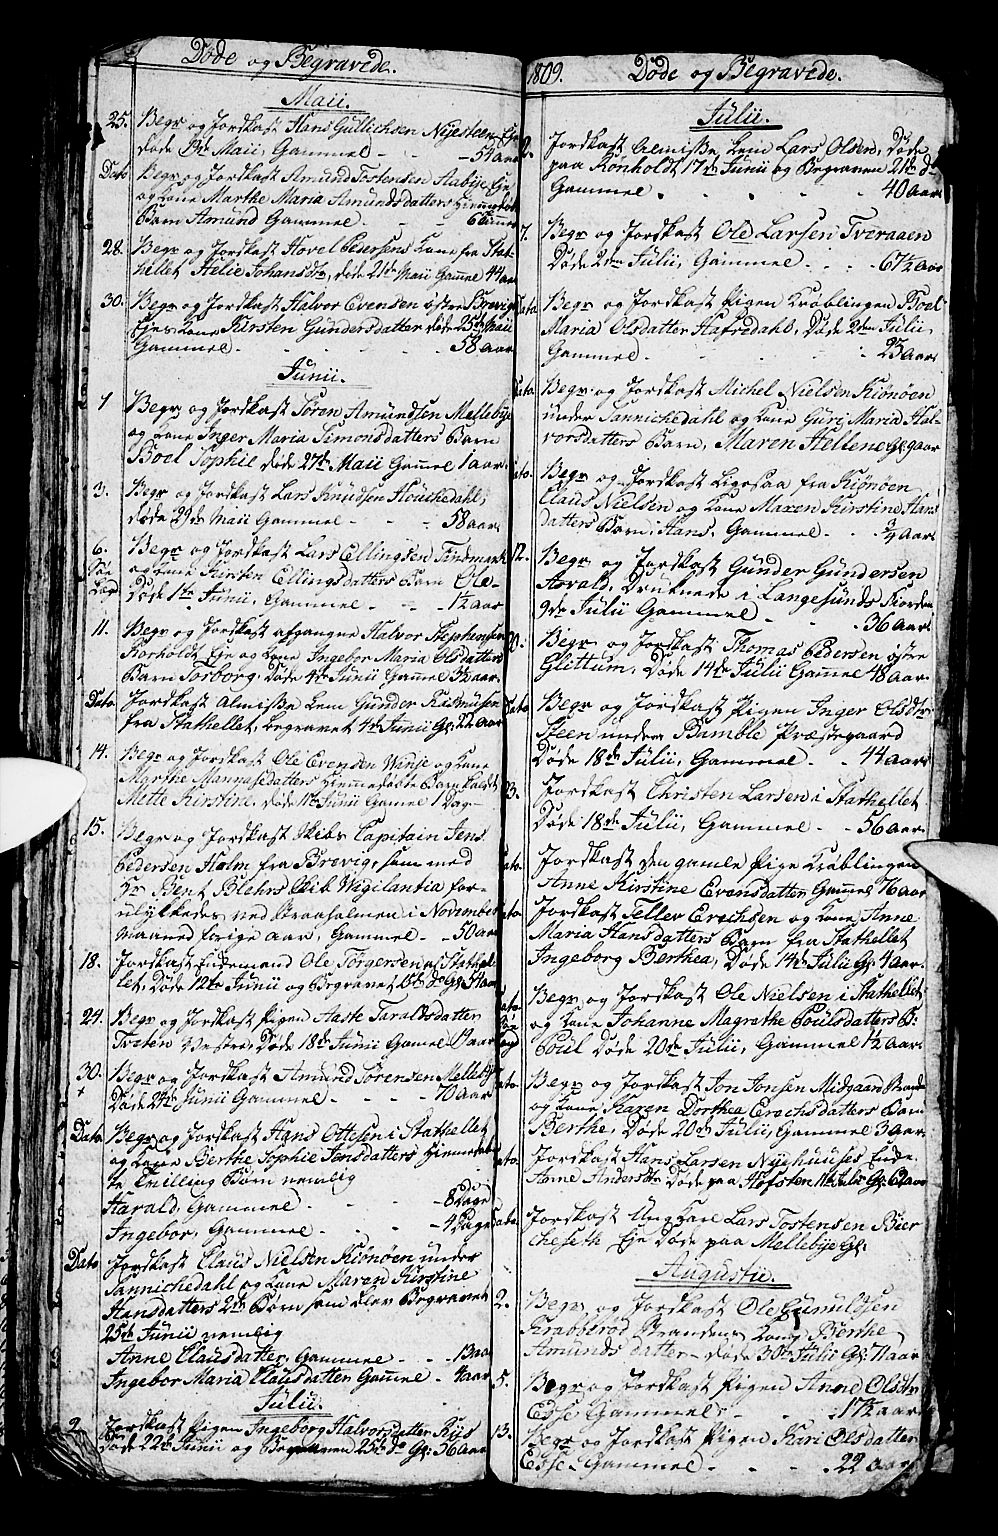 Døde og Begravede.
Maii.
25. Begr og Jordkast Hans Gullichsen Nyesteen Eje
Døde Maii, Gammel - - 54 aar
Dato Begr og Jordkast Amund Tostensen Aabye Eje
og Kone Marthe Maria Amundsdatters Hiemmedøbt
Barn Amund Gammel - - 6
28. Begr og Jordkast Hovel Pedersens Kone fra Stat-
hellet Helie Johansdtr døde 21de Maii Gamel 44 aar
30. Begr og Jordkast Halvor Evensen østre Brevigs
Eje Kone Kirsten Gundersdatter døde 25de Maii
Gammel - - - - 58 aar
Junii.
1 Begr og Jordkast Søren Amundsen Mellebye
og Kone Inger Maria Simonsdatters Barn
Boel Sophie døde 27de Maii Gamel 1 aar
3. Begr og Jordkast Lars Knudsen Houchedahl,
døde 29de Maii Gammel - - - 58 aar
6. Begr og Jordkast Lars Ellingsen Findmark
og Kone Kirsten Ellingsdatters Barn Ole
Døde 1ste Junii, Gammel - - 1½ aar
11. Begr og Jordkast afgangne Halvor Stephensen
Forholdt Eje og Kone Ingebor Maria Olsdatters
Barn Torborg, Døde 4de Junii Gamel 3½ aar
Dato Jordkast Almisse Lem Gunder Rasmusen
fra Stathellet, begravet 4de Junii Gl: 22 aar
14. Begr og Jordkast Ole Evensen Vinje og Kone
Marthe Mannasedatters Hiemmedøbte Barn kaldet
Mette Kirstine, døde 11te Junii Gamel 1 Dag
15. Begr og Jordkast Skibs Capitain Jens
Pedersen Holm fra Brevig, som med
Hr Bent Blehrs Skib Vigilantia for-
ulykkedes ved Straaholmen i November
maaned forige aar, Gammel - 50 aar
18. Jordkast Enkemand Ole Torgersen af Stathel-
let, Døde 12te Junii og Begravet 15de do Gl: 54 aar
24. Begr og Jordkast Pigen Aaste Taraldsdatter
Tveten Vestre, Døde 18de Junii Gamel 19 aar
30. Begr og Jordkast Amund Sørensen Mellebye
Døde 24de Junii Gammel - - - - 70 aar
Dato Begr og Jordkast Hans Ottesen i Stathellet
og Kone Berthe Sophie Jensdatters Hiemmedøb-
te Tvilling Børn nemlig
Harald, Gammel - - - 8 Dage
Ingebor, Gammel - - - 4 Dage
Dato Jordkast Claus Nielsen Kionøen under
Sannichedahl og Kone Maren Kirstine
Hansdatters 2de Børn som blev Begravet
25de Junii nemlig
Anne Clausdatter, Gammel - - 13 aar
Ingebor Maria Clausdatter Gamel - 4 aar
Julii.
2. Jordkast Pigen Ingeborg Halvorsdatter Rijs
Døde 22de Junii og Begraven 25de do Gl: 36 aar
1809. Døde og Begravede.
Julii.
2. Jordkast Almisse Lem Lars Olsen, Døde
paa Rønholdt 17de Junii og Begraven 21de do
Gammel - - - 40 aar
7. Begr og Jordkast Ole Larsen Tveraaen
Døde 2den Julii, Gammel - - - 67½ aar
Dato Begr og Jordkast Pigen Krøblingen Boel
Maria Olsdatter Hafredahl, Døde 2den Julii
Gammel - - - - 23 aar
Dato Begr og Jordkast Michel Nielsen Kionøen
under Sannichedahl og Kone Guri Maria Hal-
vorsdatters Barn, Maren Hellene Gl: 9 aar
Dato. Begr og Jordkast Ligesaa fra Kiønøen
Claus Nielsen og Kone Maren Kirstine Hans
datters Barn, Hans, Gammel - - ¾ aar
12. Begr og Jordkast Gunder Gundersen
Asvald, Druknede i Langesunds Fiorden
9de Julii Gammel - - - 36 aar
20. Begr og Jordkast Thomas Pedersen østre
Glittum, Døde 14de Julii Gammel 48 aar
Dato Begr og Jordkast Pigen Inger Olsdtr
Steen under Bamble Præstegaard
Døde 18de Julii, Gammel - - 44 aar
23. Jordkast Christen Larsen i Stathellet
Døde 18de Julii, Gammel - - 56 aar
Dato Jordkast den gamle Pige Krøblingen
Anne Kirstine Evensdatter Gamel 76 aar
Dato Jordkast Tellev Erechsen og Kone Anne
Maria Hansdatters Barn fra Stathellet
Ingeborg Berthea, Døde 14de Julii Gl: 4 aar.
Dato Begr og Jordkast Ole Nielsen i Stathellet
og Kone Johanne Magrethe Poulsdatters B:
Poul Døde 20de Julii, Gammel 1½ aar
Dato Begr og Jordkast Jon Jonsen Midgaard
og Kone Karen Dorthea Erechsdatters Barn
Berthe, Døde 20de Julii, Gammel 3 aar
Dato. Jordkast Hans Larsen Nyehuuses Enke
Anne Andersdtr Døde paa Høgsten 11te Julii Gl:
Dato Jordkast Ung Karl Lars Tostensen Bier
cheseth Eje Døde paa Mellebye Gl:
Augustii.
2. Begr og Jordkast Ole Gunuldsen
Krabberød Strandens Kone Berthe
Amunds datter - Døde 30te Julii Gl: 71 aar
5. Begr og Jordkast Pigen Anne Olsdtr
Esse Gammel - - - 17½ aar
13. Begr og Jordkast Pigen Kari Olsdatter
Esse - Gammel - - - 22 aar